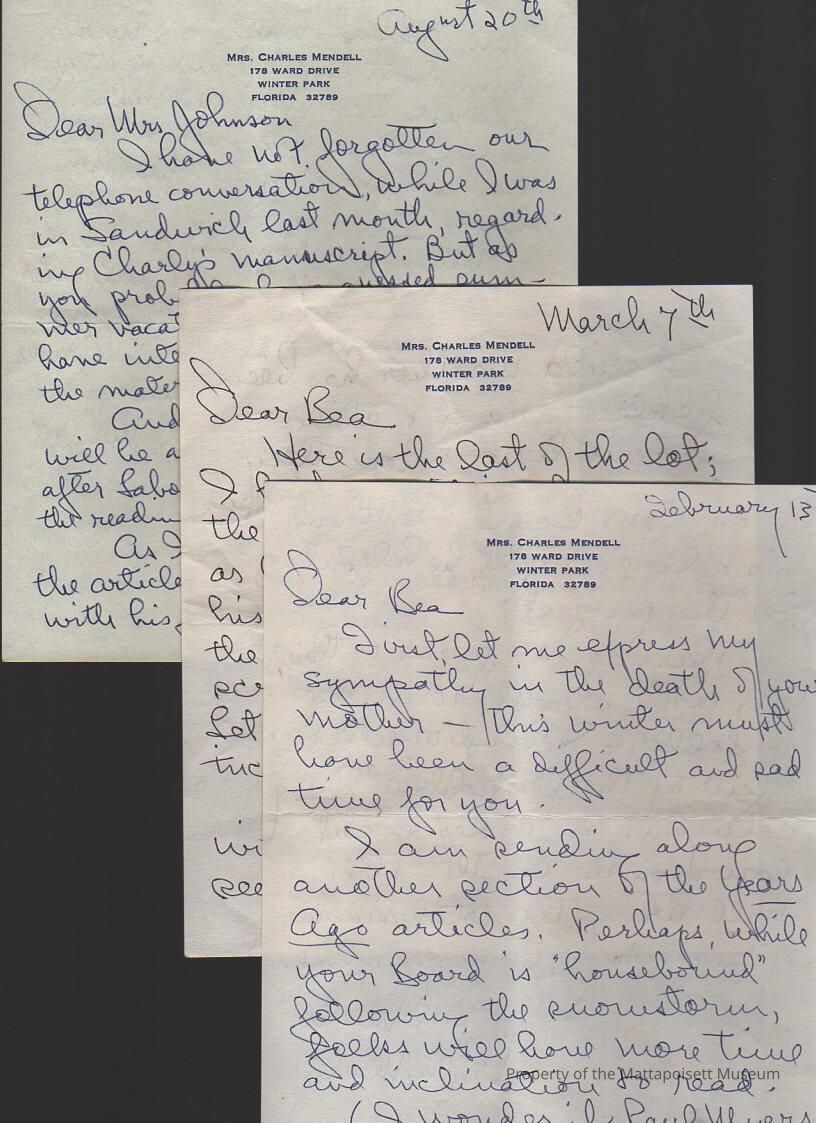 August 20th
MRS. CHARLES MENDELL
178 WARD DRIVE
WINTER PARK
FLORIDA 32789
Dear Mrs Johnson
I have not forgotten our
telephone conversation, while I was
in Sandwich last month, regard-
ing Charly's manuscript. But as
you prob guessed sum-
mer vaca
have inte
the mater
And
will be a
after Labo
the readin
As I
the article
with his
March 7th
MRS. CHARLES MENDELL
178 WARD DRIVE
WINTER PARK
FLORIDA 32789
Dear Bea
Here is the last of the lot;
I
the
as
his
the
scr
Let
inc
wi
see
February 13
MRS. CHARLES MENDELL
178 WARD DRIVE
WINTER PARK
FLORIDA 32789
Dear Bea
First, let me express my
sympathy in the death of your
mother — this winter must
have been a difficult and sad
time for you.
I am sending along
another section of the Years
Ago articles. Perhaps, while
your Board is "housebound"
following the snowstorm,
folks will have more time
and inclination to read.
(I wonder if Paul Myers
Property of the Mattapoisett Museum